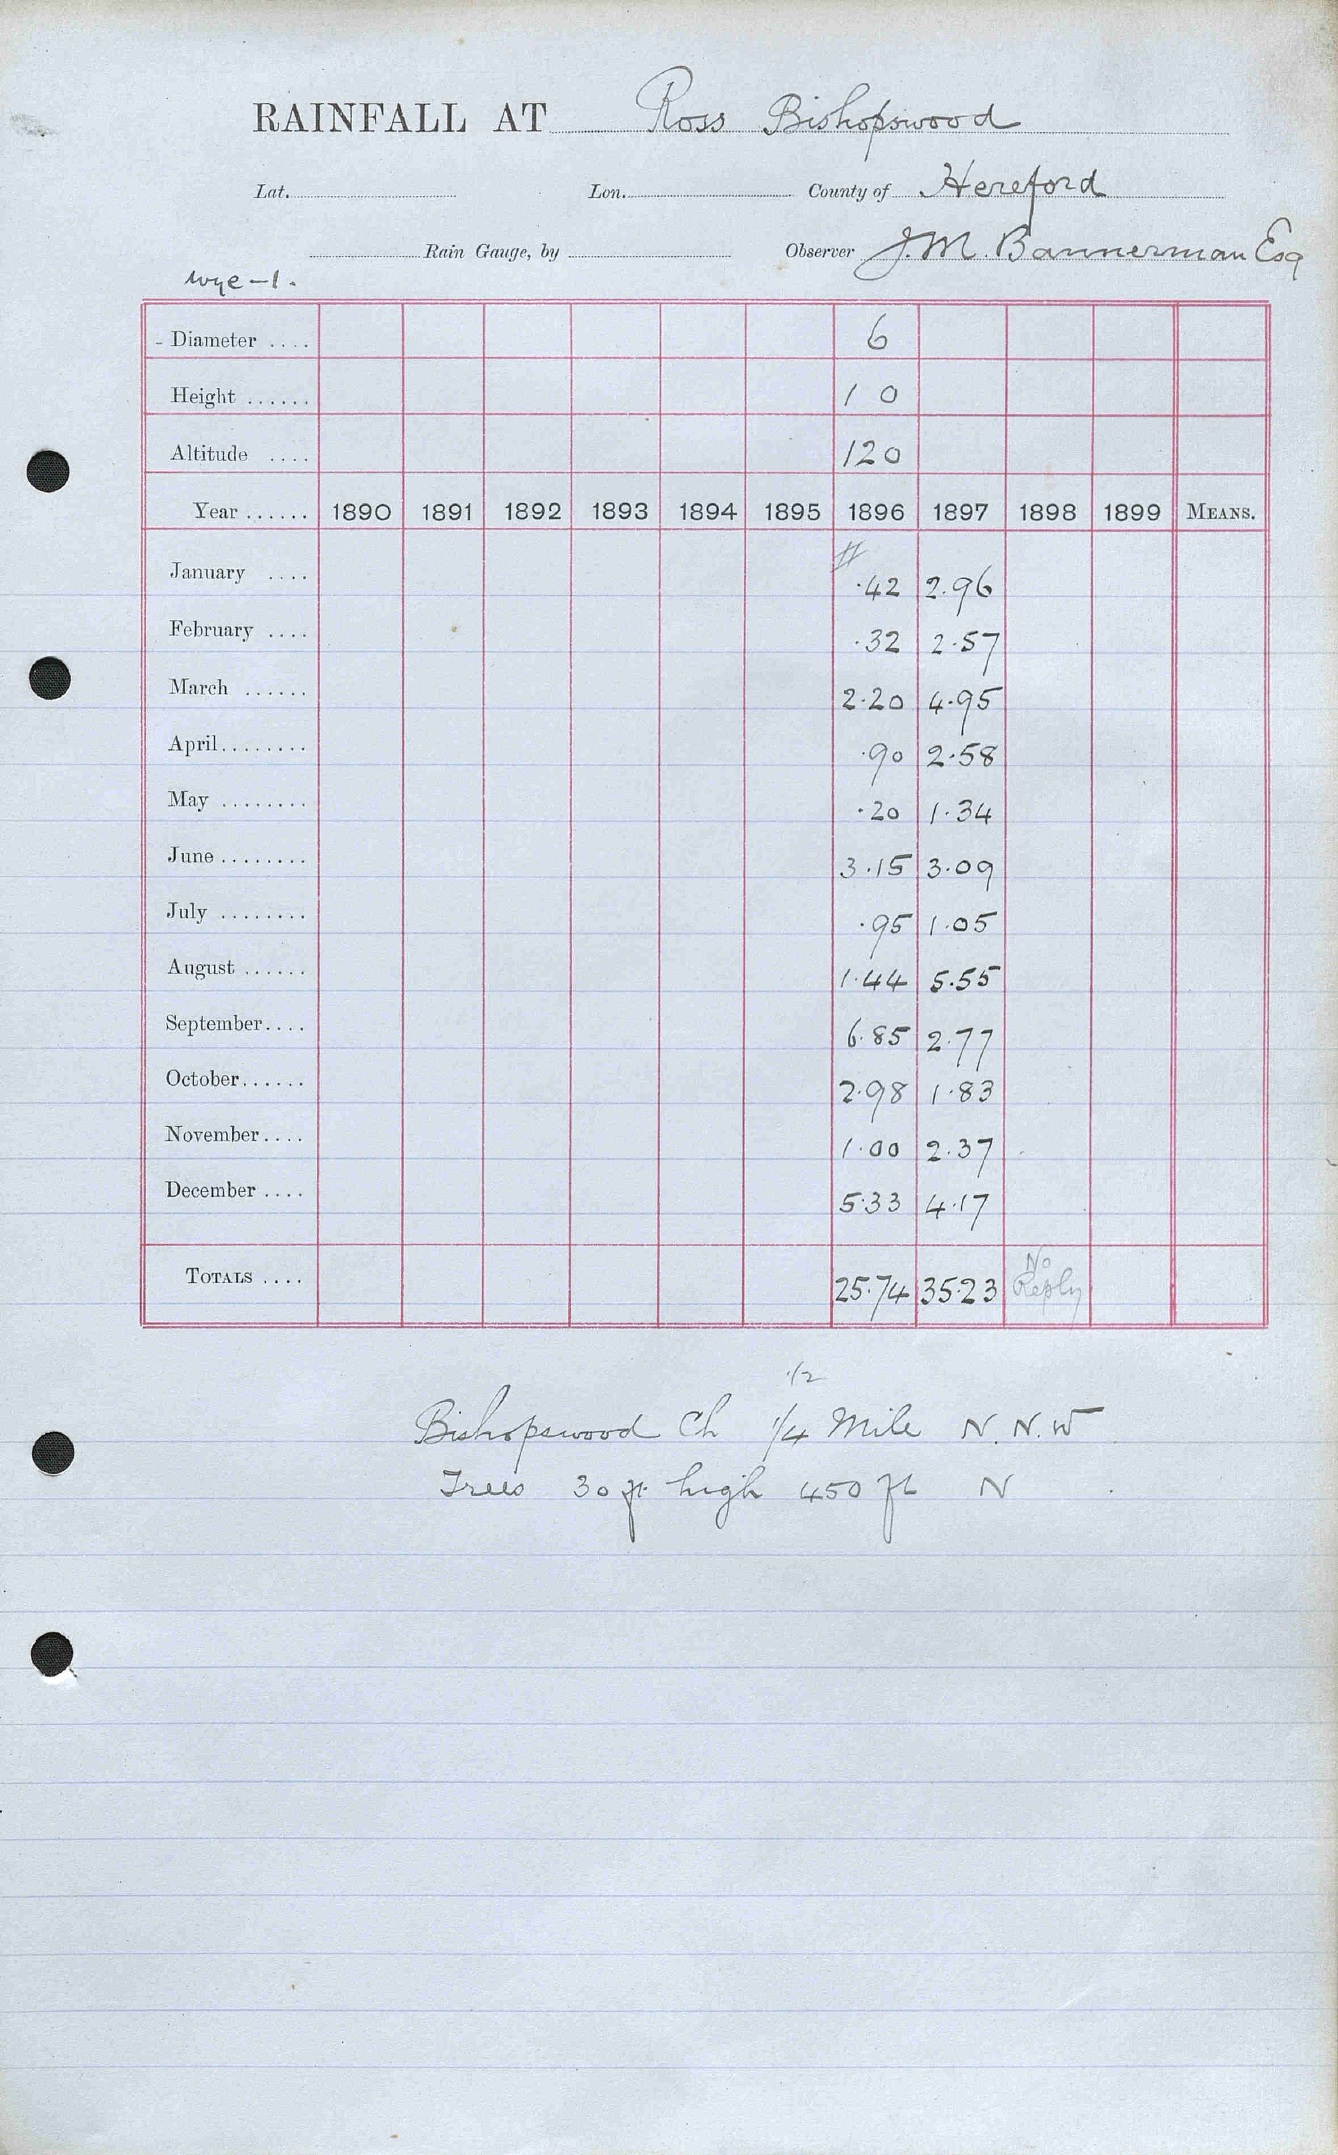 RAINFALL AT Ross Bishopswood
Lat. Lon. County of Hereford
Rain Gauge, by Observer J. M. Bannerman Esq
Wye-1.
Diameter .... 6
Height ...... 1 0
Altitude .... 120
Year ...... 1890 1891 1892 1893 1894 1895 1896 1897 1898 1899 MEANS.
#
January .... .42 2.96
February .... .32 2.57
March ...... 2.20 4.95
April........ .90 2.58
May ........ .20 1.34
June ........ 3.15 3.09
July ........ .95 1.05
August ...... 1.44 5.55
September.... 6.85 2.77
October...... 2.98 1.83
November.... 1.00 2.37
December .... 5.33 4.17
TOTALS .... 25.74 35.23 No Reply
1/2
Bishopswood Ch 1/4 Mile N.N.W
Trees 30 ft high 450 ft N